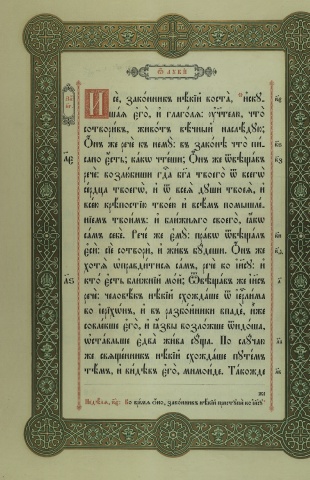 Ѿ ЛꙊКИ
И҆ сѐ, зако́нникъ нѣ́кїй воста̀, и҆скꙋ-
ша́ѧ є҆го̀, и҆ глаго́лѧ: ᲂу҆чт҃лю, что̀
сотвори́въ, живо́тъ вѣ́чный наслѣ́дꙋю;
Ѻ҆́нъ же речѐ къ немꙋ̀: въ зако́нѣ что̀ пи́-
сано є҆́сть; ка́кѡ чте́ши; Ѻ҆́нъ же ѿвѣща́въ
речѐ: возлю́биши гд҇а бг҃а твоего̀ ѿ всегѡ̀
се́рдца твоегѡ̀, и҆ ѿ всеѧ̀ дꙋшѝ твоеѧ̀, и҆
все́ю крѣ́постїю твое́ю, и҆ всѣ́мъ помышле́-
нїемъ твои́мъ: и҆ бли́жнѧго своего̀, ꙗ҆́кѡ
са́мъ себѐ. Рече́ же є҆мꙋ̀: пра́вѡ ѿвѣща́лъ
є҆сѝ: сїѐ сотворѝ, и҆ жи́въ бꙋ́деши. Ѻ҆́нъ же
хотѧ̀ ѡ҆правди́тисѧ са́мъ, речѐ ко і҆и҃сꙋ: и҆
кто̀ є҆́сть бли́жнїй мо́й; Ѿвѣща́въ же і҆и҃съ
речѐ: человѣ́къ нѣ́кїй схожда́ше ѿ і҆ер҇ли́ма
во і҆ерїхѡ́нъ, и҆ въ разбо́йники впадѐ, и҆̀же
совле́кше є҆го̀, и҆ ꙗ҆́звы возло́жше ѿидо́ша,
ѡ҆ста́вльше є҆два̀ жи́ва сꙋ́ща. По слꙋ́чаю
же свѧще́нникъ нѣ́кїй схожда́ше пꙋте́мъ
тѣ́мъ, и҆ ви́дѣвъ є҆го̀, мимои́де. Та́кожде
же
Недѣ́лѧ, к҃є: Во вре́мѧ ѻ҆́но, зако́нникъ нѣ́кїй пристꙋпѝ ко і҆и҃сꙋ